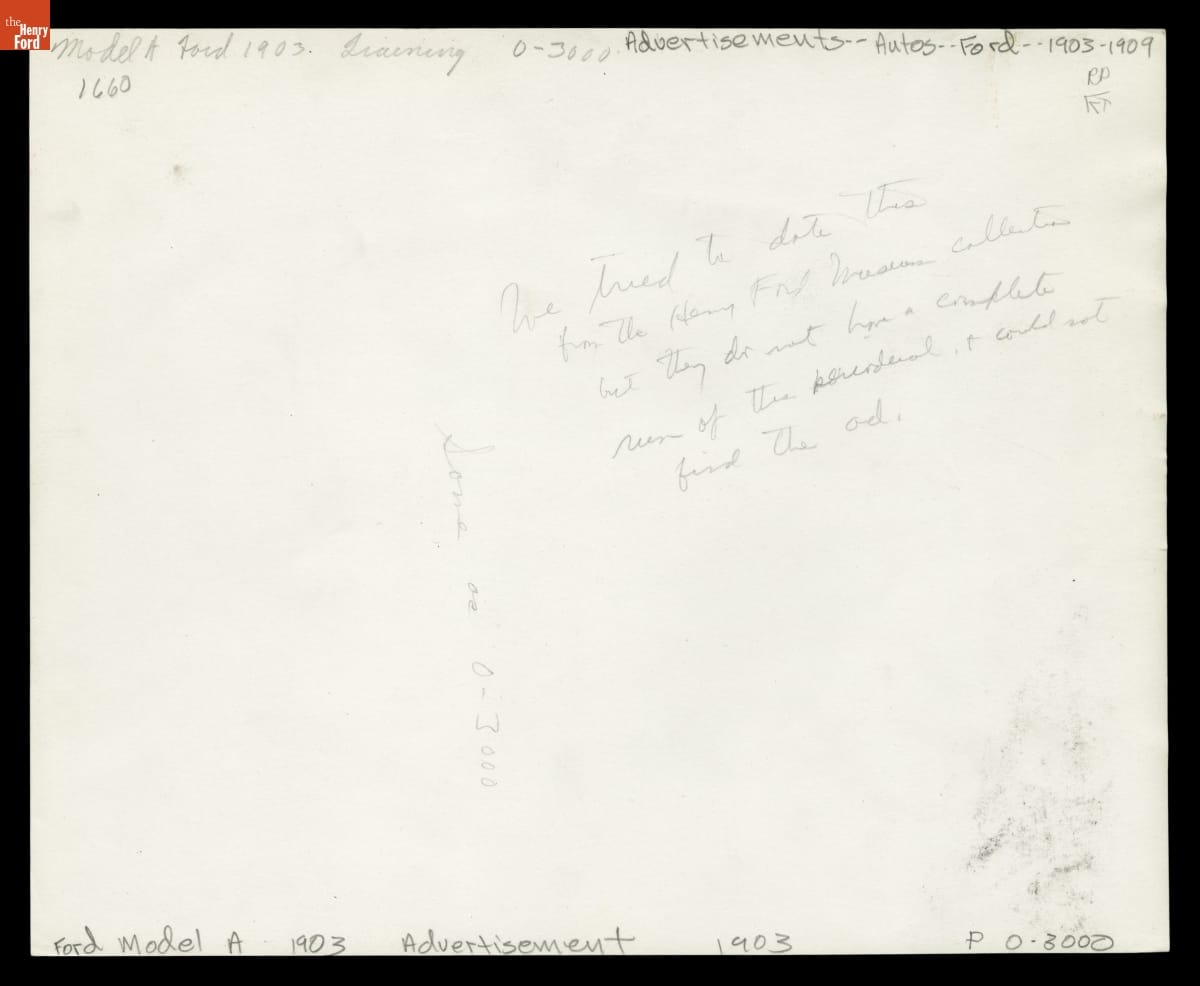 the
Henry
Ford
Model A Ford 1903. Training 0-3000. Advertisements--Autos--Ford--1903-1909
1660
We tried to date this
from the Henry Ford Museum collection
but they do not have a complete
run of this , + could not
find the ad.
Same as 0-3000
Ford Model A 1903 Advertisement 1903 P 0-3000